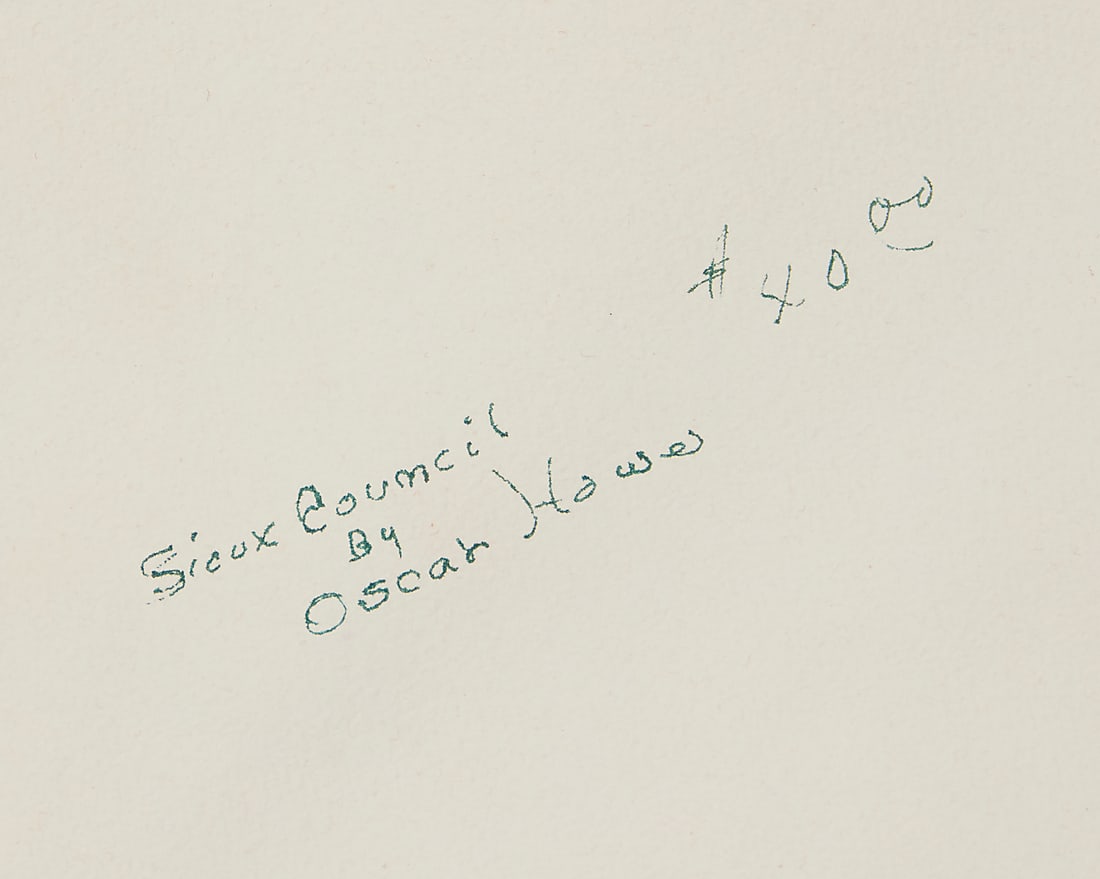 $ 40 00
Sioux Council
By
Oscar Howe